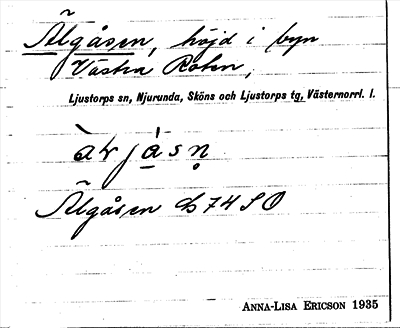 Älgåsen, höjd i byn
Västra Röten,
Ljustorps sn, Njurunda, Sköns och Ljustorps tg, Västernorrl. l.
Älgåsen G 74 S O
ANNA-LISA ERICSON 1935